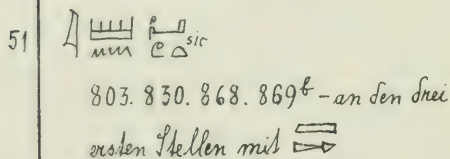 51 𓇋𓏠𓈖 sic
803. 830. 868. 869ᵇ – an den drei
ersten Stellen mit